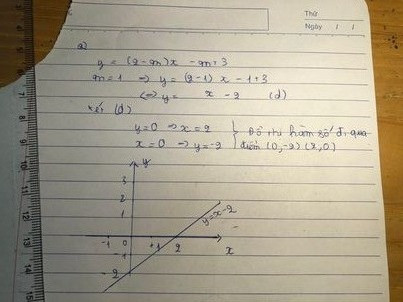 Thứ
Ngày / /
a)
y = (2-m)x -m+3
m=1 => y = (2-1) x -1+3
(=> y = x - 2 (d)
xét (d)
y=0 => x=2 } Đồ thị hàm số đi qua
x=0 => y=-2 điểm (0,-2) (2,0)
y
3
2
1
y=x-2
-1 0 +1 2 x
-1
-2
11
12
13
14
15